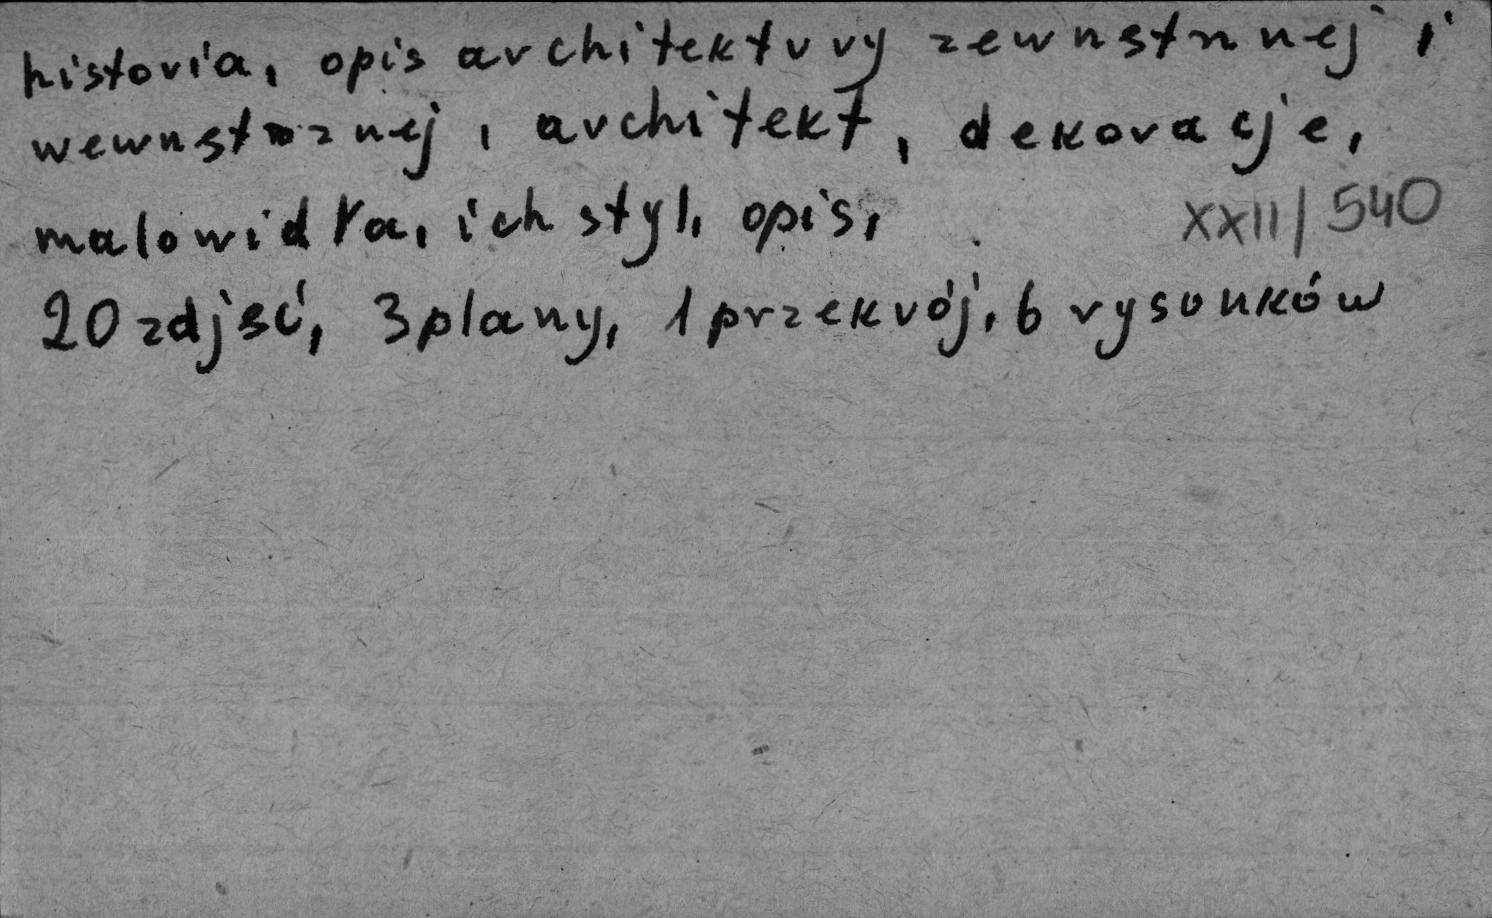 historia, opis architektury zewnętrznej i
wewnętrznej, architekt, dekoracje,
malowidła, ich styl, opis,
XXII/540
20 zdjęć, 3 plany, 1 przekrój, 6 rysunków